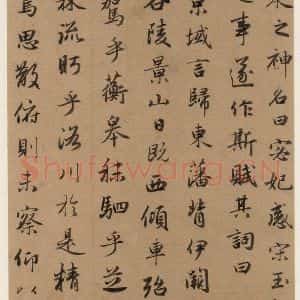 水之神名曰宓妃感宋玉
之事遂作斯賦其詞曰
京域言歸東藩背伊闕
谷陵景山日既西傾車殆
駕乎蘅皋秣駟乎芝
林流眄乎洛川於是精
焉思散俯則未察仰以
Shufawang.CN